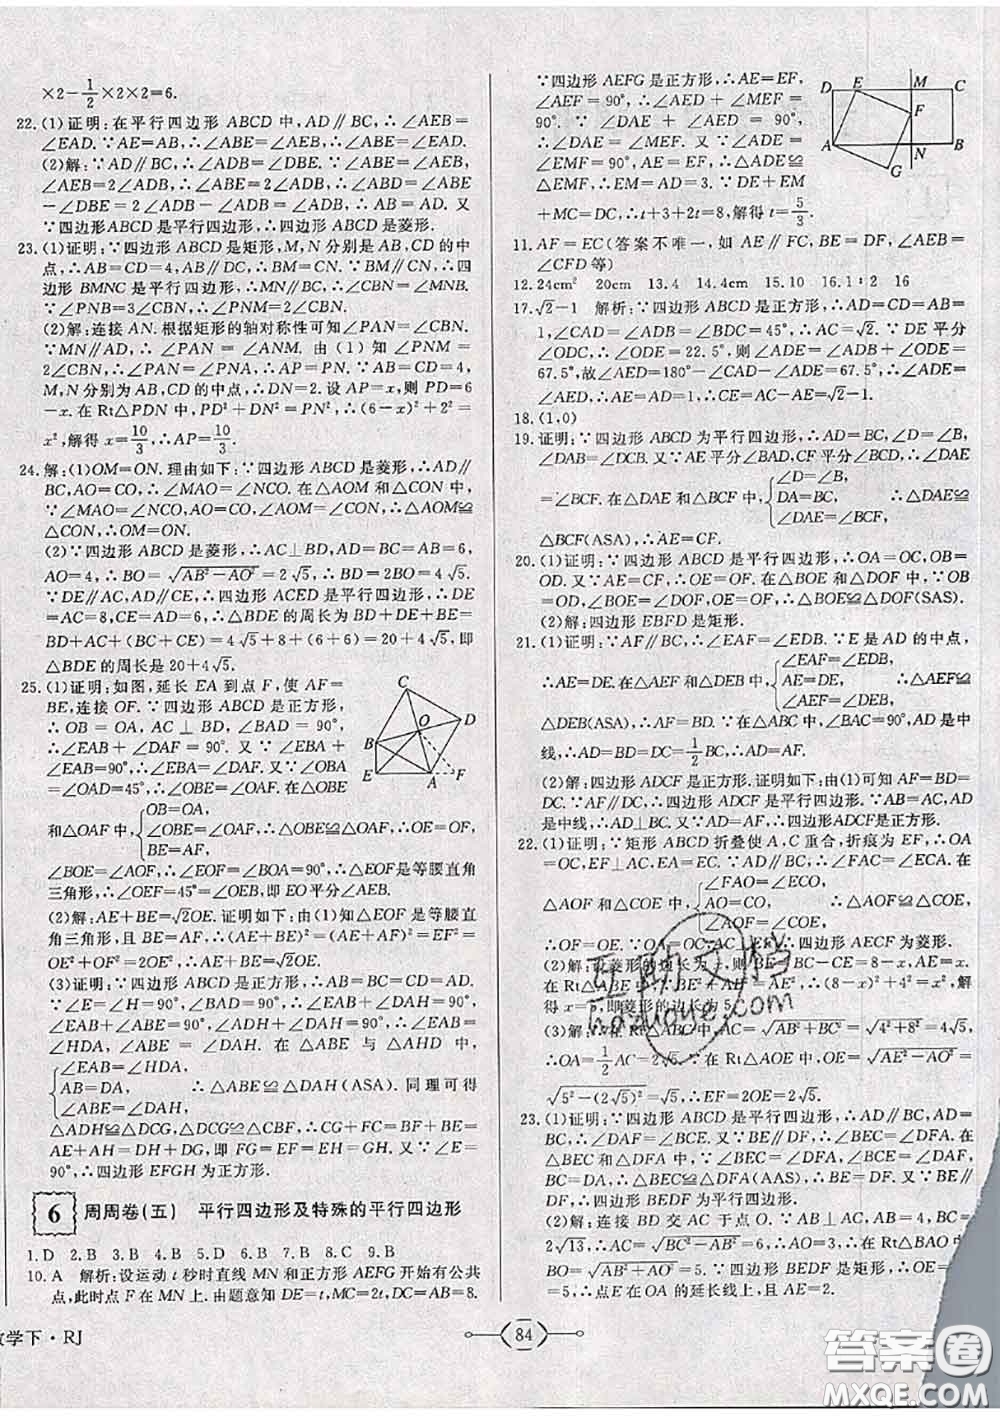 ×2-1/2×2×2=6.
22.(1)证明:在平行四边形ABCD中,AD∥BC,∴∠AEB=
∠EAD.∵AE=AB,∴∠ABE=∠AEB,∴∠ABE=∠EAD.
(2)解:∵AD∥BC,∴∠ADB=∠DBE.∵∠ABE=∠AEB,
∠AEB=2∠ADB,∴∠ABE=2∠ADB,∴∠ABD=∠ABE-
∠DBE=2∠ADB-∠ADB=∠ADB,∴AB=AD.又
∵四边形ABCD是平行四边形,∴四边形ABCD是菱形.
23.(1)证明:∵四边形ABCD是矩形,M,N分别是AB,CD的中
点,∴AB=CD=4,AB∥DC,∴BM=CN,∴BM∥CN,∴四边
形BMNC是平行四边形,∴MN∥BC,∴∠CBN=∠MNB.
∵∠PNB=3∠CBN,∴∠PNM=2∠CBN.
(2)解:连接AN.根据矩形的轴对称性可知∠PAN=∠CBN.
∵MN∥AD,∴∠PAN=∠ANM.由(1)知∠PNM=
2∠CBN,∴∠PAN=∠PNA,∴AP=PN.∵AB=CD=4,
M,N分别为AB,CD的中点,∴DN=2.设AP=x,则PD=6
-x.在Rt△PDN中,PD²+DN²=PN²,∴(6-x)²+2²=
x²,解得x=10/3,∴AP=10/3.
24.解:(1)OM=ON.理由如下:∵四边形ABCD是菱形,∴AD∥
BC,AO=CO,∴∠MAO=∠NCO.在△AOM和△CON中,
∵∠MAO=∠NCO,AO=CO,∠AOM=∠CON,∴△AOM≌
△CON,∴OM=ON.
(2)∵四边形ABCD是菱形,∴AC⊥BD,AD=BC=AB=6,
AO=4,∴BO=√(AB²-AO²)=2√5,∴BD=2BO=4√5.
∵DE∥AC,AD∥CE,∴四边形ACED是平行四边形,∴DE=
AC=8,CE=AD=6,∴△BDE的周长=BD+DE+BE=
BD+AC+(BC+CE)=4√5+8+(6+6)=20+4√5,即
△BDE的周长是20+4√5.
25.(1)证明:如图,延长EA到点F,使AF=
BE,连接OF.∵四边形ABCD是正方形,
∴OB=OA,AC⊥BD,∴∠BAD=90°,
∴∠EAB+∠DAF=90°.又∵∠EBA+
∠EAB=90°,∴∠EBA=∠DAF.又∵∠OBA
=∠OAD=45°,∴∠OBE=∠OAF.在△OBE
和△OAF中,{OB=OA,
∠OBE=∠OAF,
BE=AF,
∴△OBE≌△OAF,∴OE=OF,
∠BOE=∠AOF,∴∠EOF=∠BOA=90°,∴△EOF是等腰直角
三角形,∴∠OEF=45°=∠OEB,即EO平分∠AEB.
(2)解:AE+BE=√2OE.证明如下:由(1)知△EOF是等腰直
角三角形,且BE=AF,∴(AE+BE)²=(AE+AF)²=EF²=
OE²+OF²=2OE²,∴AE+BE=√2OE.
(3)证明:∵四边形ABCD是正方形,∴AB=BC=CD=AD.
∵∠E=∠H=90°,∴∠EAB+∠HAD=90°,
∠EAB+∠ABE=90°,∴∠ABE=
∠HDA,∴∠ABE=∠HDA.在△ABE与△ADH中,
{∠ABE=∠HDA,
AB=DA,
∠EAB=∠DAH,
∴△ABE≌△DAH(ASA).同理可得
△ADH≌△DCG,△DCG≌△CBF,∴CG=FB=DH=AE,
∴DG=CF=BE=AH,即FG=EF=EH=HG.又∵∠E=
90°,∴四边形EFGH为正方形.
6 周周卷(五) 平行四边形及特殊的平行四边形
1.D 2.B 3.B 4.B 5.A 6.B 7.B 8.C 9.B
10.A 解析:设运动t秒时直线MN和正方形AEFG开始有公共
点,此时点F在MN上.由题意知DE=t,MC=2t,DC=AB=8.
C
O
D
B
E
A
F
∵四边形AEFG是正方形,∴AE=EF,
∠AEF=90°,∴∠AED+∠MEF=
90°.∵∠DAE+∠AED=90°,
∴∠DAE=∠MEF.又∵∠ADE=
∠EMF=90°,AE=EF,∴△ADE≌
△EMF,∴EM=AD=3.∵DE+EM
+MC=DC,∴t+3+2t=8,解得t=5/3.
D E M C
F
A N B
G
11.AF=EC(答案不唯一,如AE∥FC,BE=DF,∠AEB=
∠CFD等)
12.24cm² 20cm 13.4 14.4cm 15.10 16.1∶2 16
17.√2-1 解析:∵四边形ABCD是正方形,∴AB=AD=
1,∠CAD=∠ADB=∠BDC=45°,∴AC=√2.∵DE平分
∠ODC,∴∠ODE=22.5°,则∠ADE=∠ADB+∠ODE=
67.5°,故∠AED=180°-∠CAD-∠ADE=67.5°,∴∠ADE=
∠AED,∴AE=AD=1,∴CE=AC-AE=√2-1.
18.(1,0)
19.证明:∵四边形ABCD为平行四边形,∴AD=BC,∠D=∠B,
∠DAB=∠DCB.又∵AE平分∠BAD,CF平分∠BCD,∴∠DAE
=∠BCF.在△DAE和△BCF中,{∠D=∠B,
DA=BC,
∠DAE=∠BCF,
∴△DAE≌
△BCF(ASA),∴AE=CF.
20.(1)证明:∵四边形ABCD是平行四边形,∴OA=OC,OB=
OD.又∵AE=CF,∴OE=OF.在△BOE和△DOF中,∵OB=
OD,∠BOE=∠DOF,OE=OF,∴△BOE≌△DOF(SAS).
(2)解:四边形EBFD是矩形.
21.(1)证明:∵AF∥BC,∴∠EAF=∠EDB.∵E是AD的中点,
∴AE=DE.在△AEF和△DEB中,{∠EAF=∠EDB,
AE=DE,
∠AEF=∠DEB,
∴△AEF≌
△DEB(ASA),∴AF=BD.∵在△ABC中,∠BAC=90°,AD是中
线,∴AD=BD=DC=1/2BC,∴AD=AF.
(2)解:四边形ADCF是正方形.证明如下:由(1)可知AF=BD=
DC.∵AF∥BC,∴四边形ADCF是平行四边形.∵AB=AC,AD
是中线,∴AD⊥BC.又∵AD=AF,∴四边形ADCF是正方形.
22.(1)证明:∵矩形ABCD折叠使A,C重合,折痕为EF,∴OA
=OC,EF⊥AC,EA=EC.∵AD∥BC,∴∠FAC=∠ECA.在
△AOF和△COE中,{∠FAO=∠ECO,
AO=CO,
∠AOF=∠COE,
∴△AOF≌△COE,
∴OF=OE.∵OA=OC,AC⊥EF,∴四边形AECF为菱形.
(2)解:设菱形的边长为x,则BE=BC-CE=8-x,AE=x.
在Rt△ABE中,∵BE²+AB²=AE²,∴(8-x)²+4²=x²,解
得x=5,即菱形的边长为5.
(3)解:在Rt△ABC中,AC=√(AB²+BC²)=√(4²+8²)=4√5,
∴OA=1/2AC=2√5.∵在Rt△AOE中,OE=√(AE²-AO²)=
√(5²-(2√5)²)=√5,∴EF=2OE=2√5.
23.(1)证明:∵四边形ABCD是平行四边形,∴AD∥BC,AD=
BC,∴∠DAF=∠BCE.又∵BE∥DF,∴∠BEC=∠DFA.在
△BEC和△DFA中,∵∠BEC=∠DFA,∠BCE=∠DAF,BC=
AD,∴△BEC≌△DFA,∴BE=DF.又∵BE∥DF,∴四边形
BEDF为平行四边形.
(2)解:连接BD交AC于点O.∵AB⊥AC,AB=4,BC=
2√13,∴AC=√(BC²-AB²)=6,∴AO=3.∴在Rt△BAO中,BO=
√(AB²+AO²)=5.∵四边形BEDF是矩形,∴OE=OB=5,
∴点E在OA的延长线上,且AE=2.
数学下·RJ
84
互助文档
答案圈
MXQE.COM